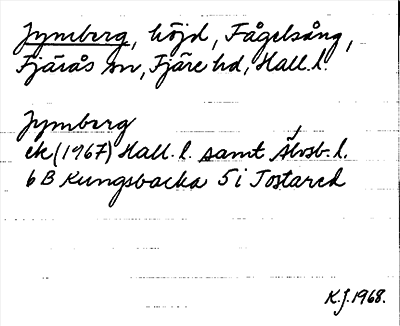 Jymberg, höjd, Fågelsång,
Fjärås sn, Fjäre hd, Hall. l.
Jymberg
ek (1967) Hall. l. samt Älvsb. l.
6 B Kungsbacka 5 i Tostared
K.J. 1968.